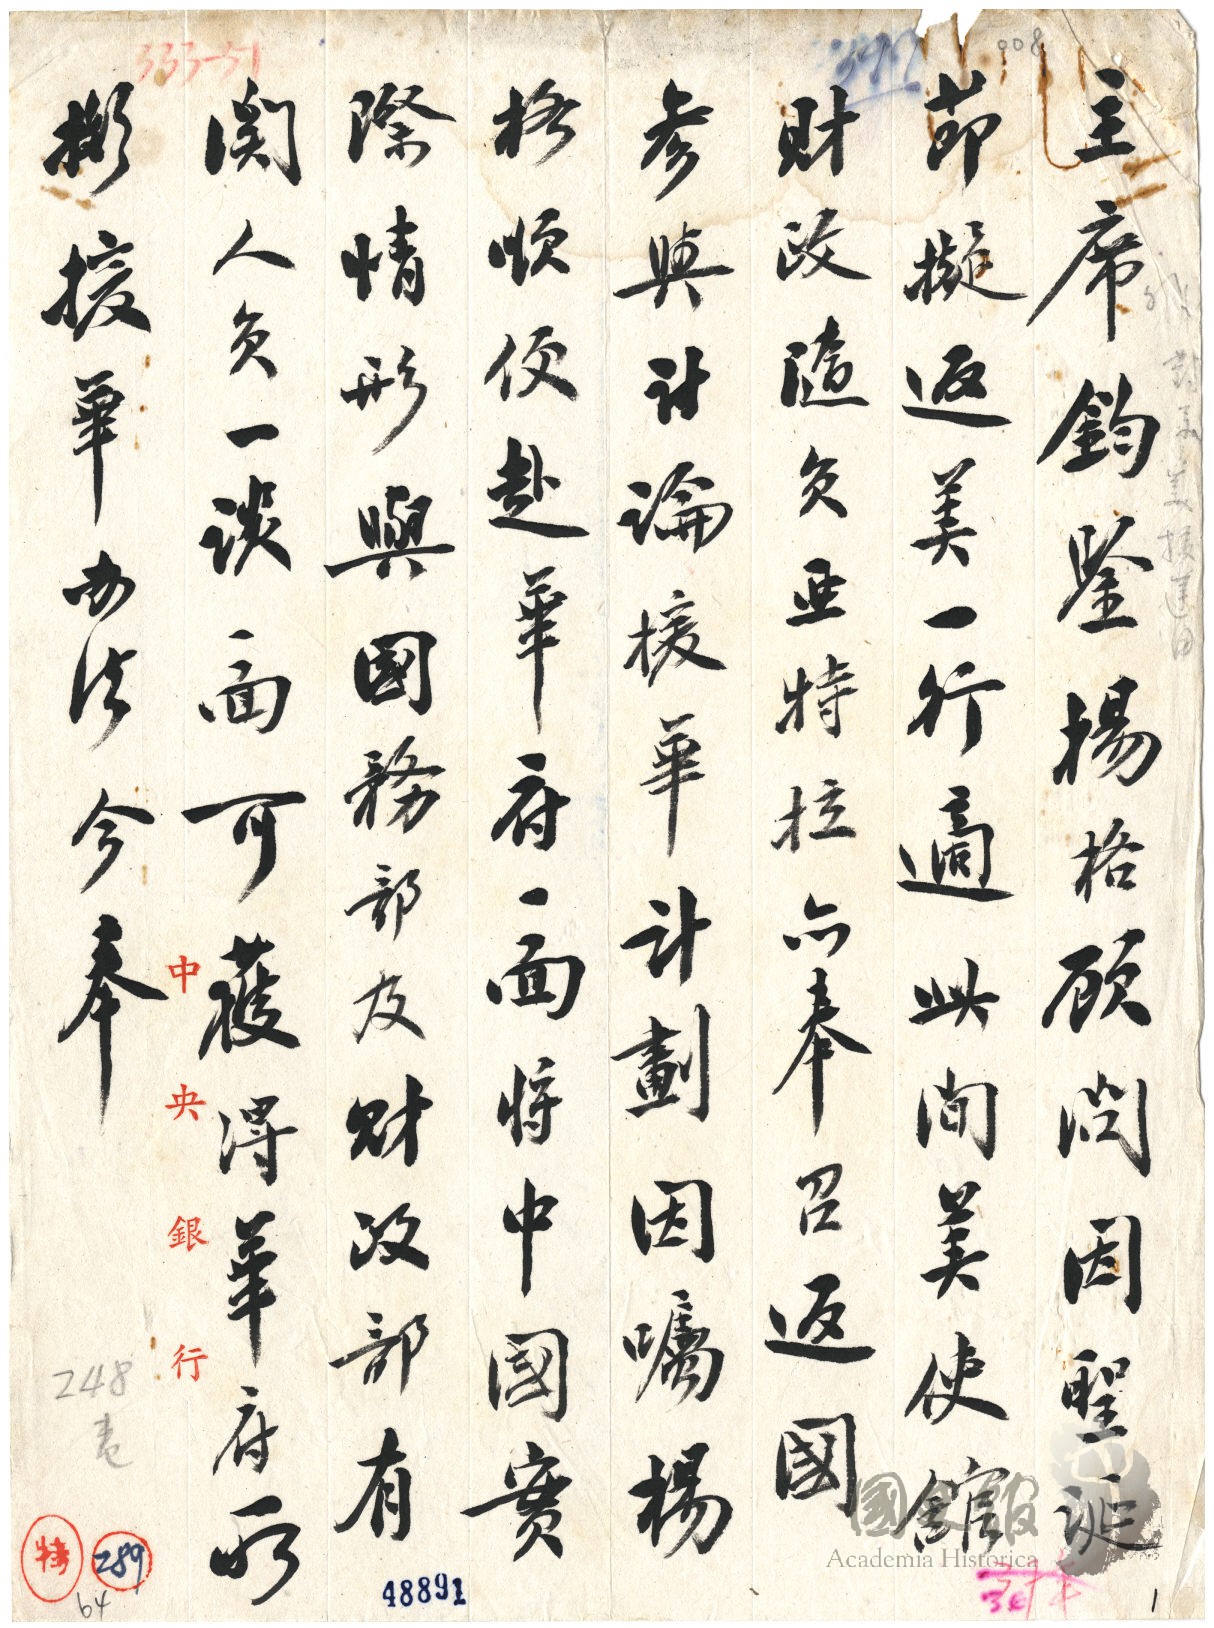 主席鈞鑒楊格顧問因聖誕
節擬返美一行適此間美使館
財政隨員亞特拉亦奉召返國
參與討論援華計劃因囑楊
格順便赴華府一面將中國實
際情形與國務部及財政部有
関人員一談一面可獲得華府所
擬援華办法今奉
中央銀行
333-51
008
248
壱
特
289
64
48891
1
國史館
Academia Historica